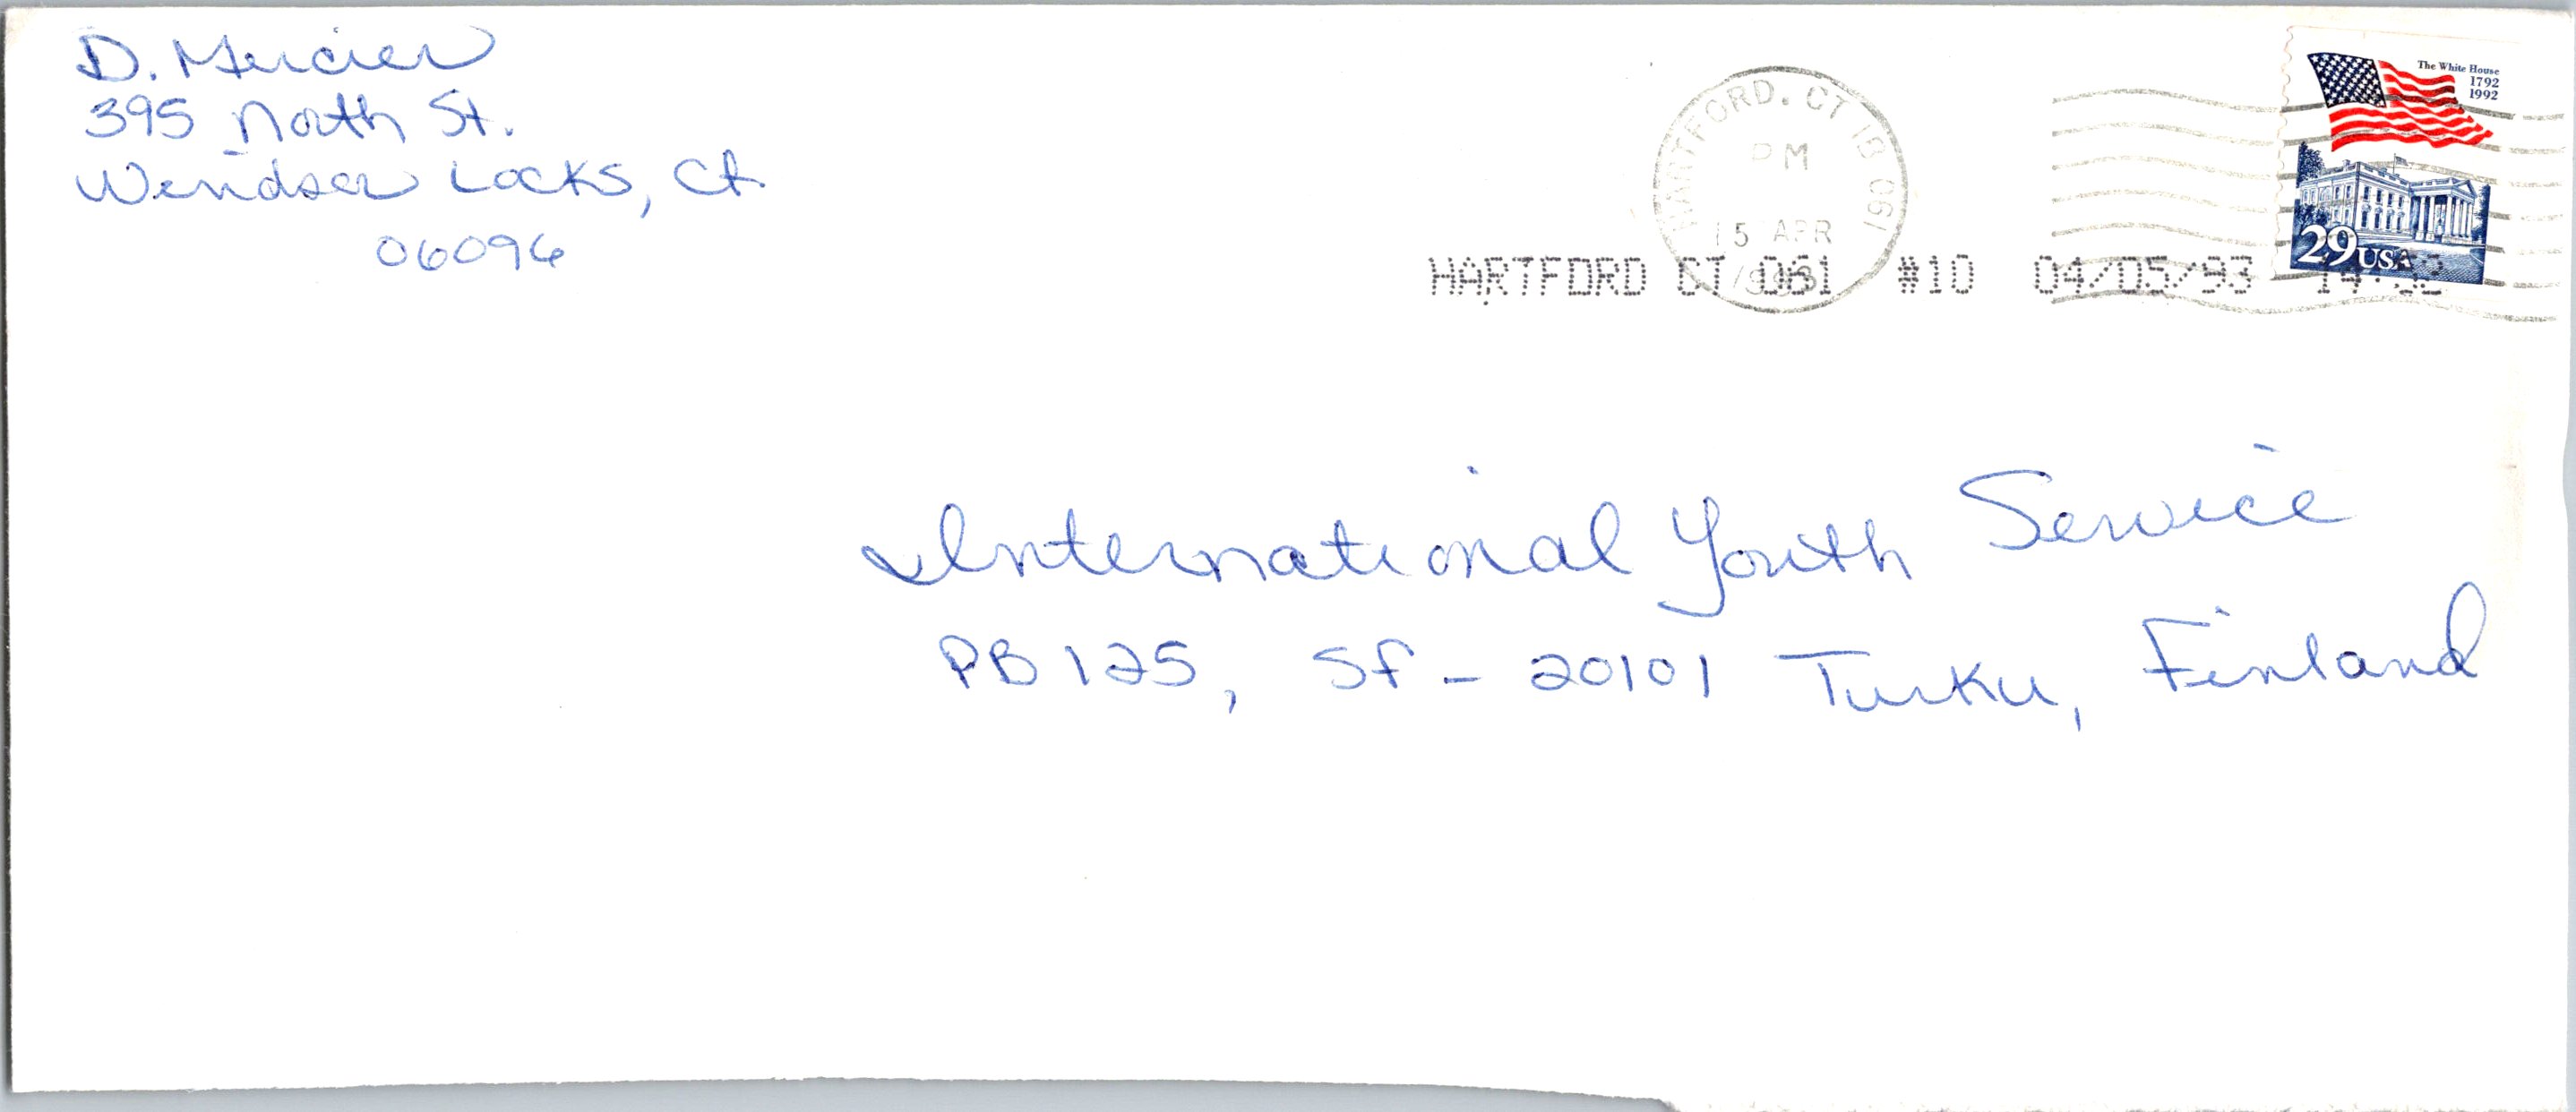 D. Mercier
395 North St.
Windsor Locks, Ct.
06096
HARTFORD, CT 18 061
PM
15 APR
1993
The White House
1792
1992
29 USA
HARTFORD CT 061 #10 04/05/93
International Youth Service
PB 125, SF - 20101 Turku, Finland